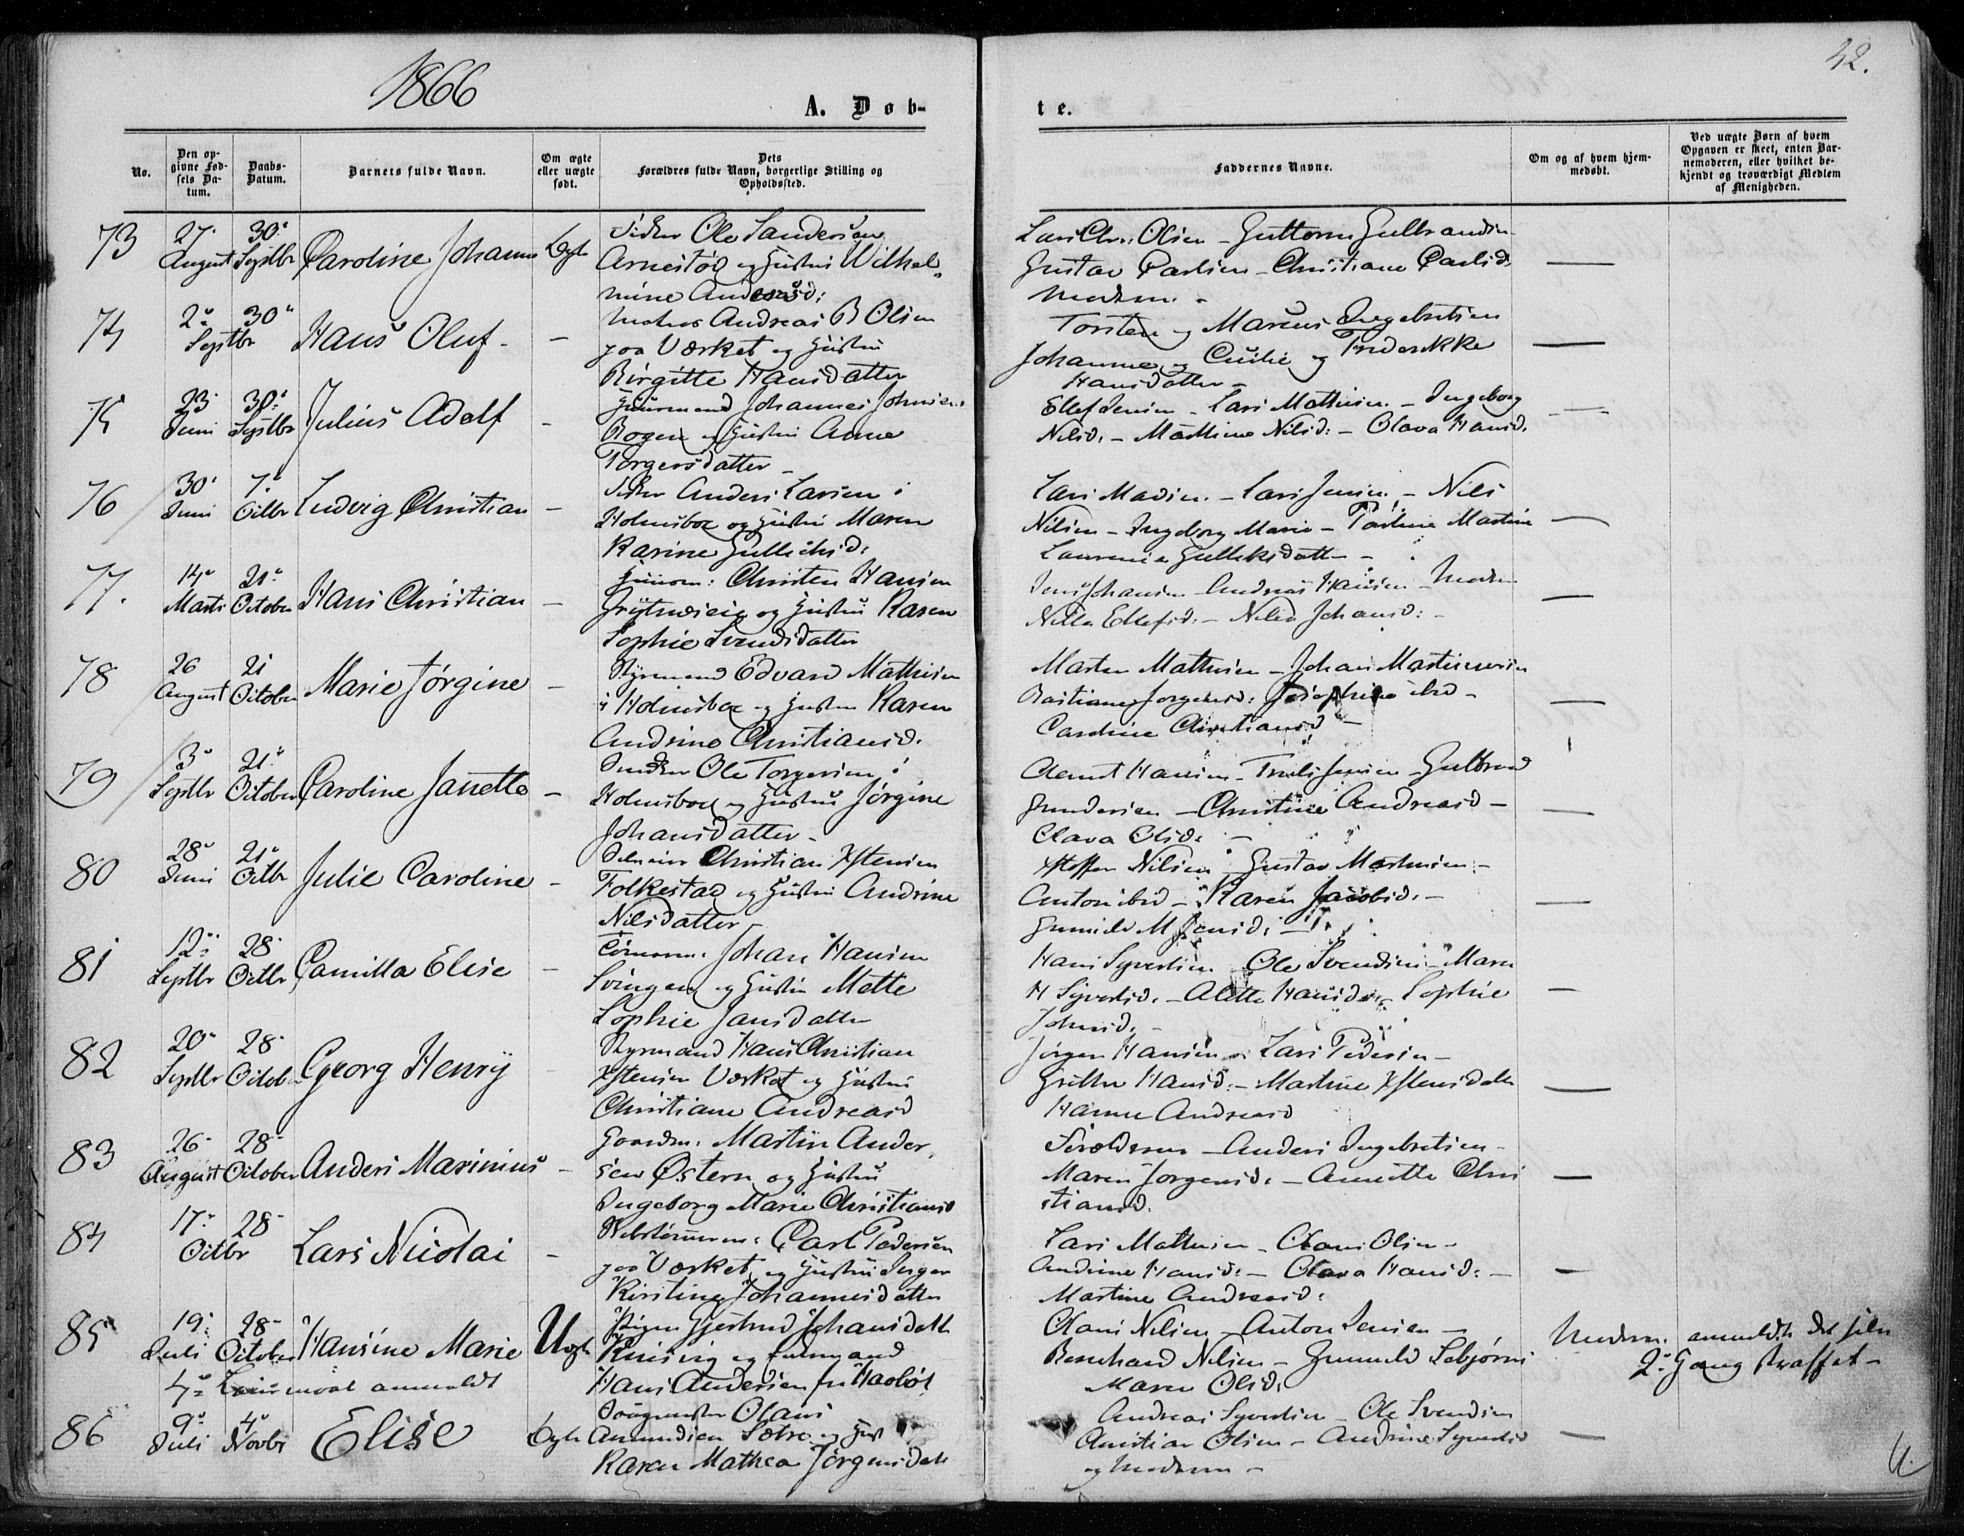 1866
42.
A. Døb-
te.
No.
Den op-
givne Fød-
sels Da-
tum.
Daabs-
Datum.
Barnets fulde Navn.
Om ægte
eller uægte
født.
Dets
Forældres fulde Navn, borgerlige Stilling og
Opholdssted.
Faddernes Navne.
Om og af hvem hjem-
medøbt.
Ved uægte Børn af hvem
Opgaven er skeet, enten Bar-
nemoderen, eller hvilket be-
kjendt og troværdigt Medlem
af Menigheden.
73
27. August
30. Septbr
Caroline Johanne
Ægte
Ole Sandersen
Arnestød og Hustru Wilhel-
mine Andersd:
Lars Chr: Olsen - Guttorm Gulbrandsen
Gustav Paulsen - Christiane Paulsd.
Moderen -
74
2. 30.
Septbr
Hans Oluf -
-
Andreas B Olsen
paa Værket og Hustru
Birgitte Hansdatter
Torsten og Marcus Ingebretsen
Johanne og Cecilie og Frederikke
Hansdatter -
75
23. Juni
30. Septbr
Julius Adolf
-
Huusmand Johannes Johnsen
Bogen og Hustru Anne
Torgersdatter -
Ellef Jensen - Lars Mathisen - Ingeborg
Nilsd. - Mathine Nilsd: - Olava Hansd.
76
30. Juni
7. Octbr
Ludvig Christian
-
Fisker Anders Larsen i
Holmsboe og Hustru Maren
Karine Gulliksd:
Lars Madsen - Lars Jensen - Nils
Nilsen - Ingeborg Marie - Pauline Martine
Laurence Gulliksdatter -
77.
14. Marts
21. October
Hans Christian
-
Huusm: Christen Hansen
og Hustru Karen
Sophie Svendsdatter
Jens Johansen - Andreas Hansen - Moderen
Nilla Ellefsd. - Johansd: -
78
26 August
21 October
Marie Jørgine
-
Styrmand Edvard Mathisen
i Holmsboe og Hustru Karen
Andrine Christiansd.
Morten Mathisen - Johan Martinusen
Bastiane Jørgensd: Josephine ibd -
Caroline Christiansd -
79
3. Septbr
21. October
Caroline Janette
-
Ole Torgersen i
Holmsboe og Hustru Jørgine
Johansdatter -
Clemet Hansen - Truls Jensen - Gulbrand
Gundersen - Christine Andreasd -
Olava Olsd: -
80
28. Juni
21. Octbr
Julie Caroline
-
Christian Xstensen
Folkestad og Hustru Andrine
Nilsdatter
Xstoffer Nilsen - Gustav Martinsen -
Anton ibd - Karen Jacobsd. -
Gunnild M Jensd:
81
12. Septbr
28. Octbr
Camilla Elise
-
Tømmerm. Johan Hansen
Svingen og Hustru Mette
Sophie Jansdatter
Hans Syversen Ole Svendsen - Maren
H Syversd. - Alette Hansd. - Sophie
Johnsd. -
82
20. Septbr
28. October
Georg Henry
Styrmand Hans Christian
Xstensen Værket og Hustru
Christiane Andreasd
Jørgen Hansen - Lars Pedersen -
Grethe Hansd. - Martine Xstensdatter
Hanne Andreasd
83
26. August
28. October
Anders Marinius
-
Gaardm. Martin Ander-
sen Østern og Hustru
Ingeborg Marie Christiansd
Forældrene - Anders Ingebretsen -
Maren Jørgensd. - Annette Chri
stiansd.
84
17. 28.
Octbr
Lars Nicolai
-
Carl Pedersen
paa Værket og Hustru Inger
Kirstine Johannesdatter
Lars Mathisen - Olaus Olsen -
Andrine Hansd: - Olava Hansd: -
Martine Andreasd:
85
19. Juli
28. October
Hansine Marie
Uægte
Pigen Gjertrud Johansdatter
og Ungmand
Hans Andersen fra
anmeldt
Olaus Nilsen - Anton Jensen -
Bernhard Nilsen - Gunnild Esbjørnsd
Maren Olsd.
Moderen anmeldte det selv
2. Gang straffet -
86
9. Juli
4. Novbr
Elise
Ægte
Olaus
Amundsen Sætre og Hust
Karen Mathea Jørgensdatter
Andreas Syversen - Ole Svendsen
Christian Olsen - Andrine Syversd
og Moderen -